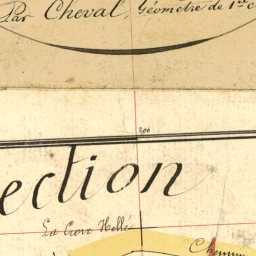 Par Cheval, Géomètre de 1re c
200
ection
La Croix Hellé
Chemin